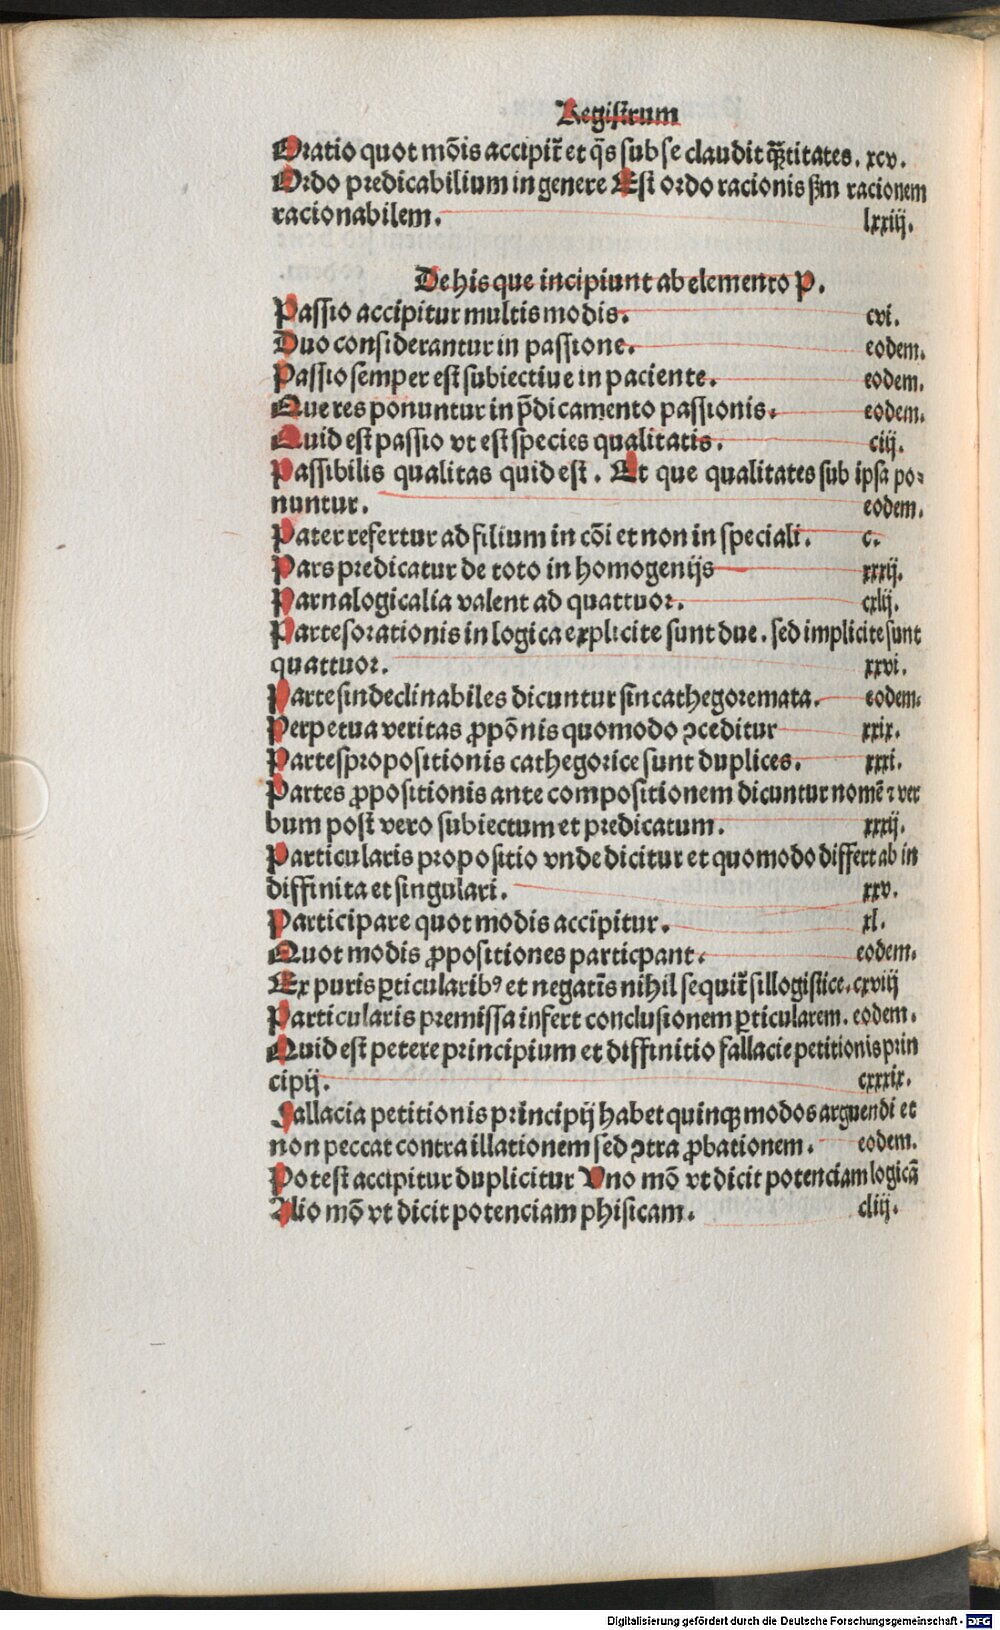 Registrum
Oratio quot mōis accipit̃ et q̄s sub se claudit q̃titates. xcv.
Ordo predicabilium in genere Est ordo racionis ẜm racionem
racionabilem. lxxiij.
De his que incipiunt ab elemento P.
Passio accipitur multis modis. cvi.
Duo considerantur in passione. eodem.
Passio semper est subiectiue in paciente. eodem.
Que res ponuntur in p̄dicamento passionis. eodem.
Quid est passio vt est species qualitatis. ciij.
Passibilis qualitas quid est. Et que qualitates sub ipsa po⸗
nuntur. eodem.
Pater refertur ad filium in cōi et non in speciali. c.
Pars predicatur de toto in homogenijs xxxij.
Parnalogicalia valent ad quattuor. cxlij.
Partes orationis in logica explicite sunt due. sed implicite sunt
quattuor. xxvi.
Partes indeclinabiles dicuntur sincathegoremata. eodem.
Perpetua veritas ꝓpōnis quomodo ↄceditur xxix.
Partes propositionis cathegorice sunt duplices. xxxi.
Partes ꝓpositionis ante compositionem dicuntur nomē ⁊ ver
bum post vero subiectum et predicatum. xxxij.
Particularis propositio vnde dicitur et quomodo differt ab in
diffinita et singulari. xxv.
Participare quot modis accipitur. xl.
Quot modis ꝓpositiones particpant. eodem.
Ex puris ꝑticularibꝰ et negatīs nihil sequit̃ sillogistice. cxviij
Particularis premissa infert conclusionem ꝑticularem. eodem.
Quid est petere principium et diffinitio fallacie petitionis prin
cipij. cxxxix.
Fallacia petitionis principij habet quinqꝫ modos arguendi et
non peccat contra illationem sed ↄtra ꝓbationem. eodem.
Potest accipitur duplicitur Uno mō vt dicit potenciam logicā
Alio mō vt dicit potenciam phisicam. cliij.
Digitalisierung gefördert durch die Deutsche Forschungsgemeinschaft - DFG